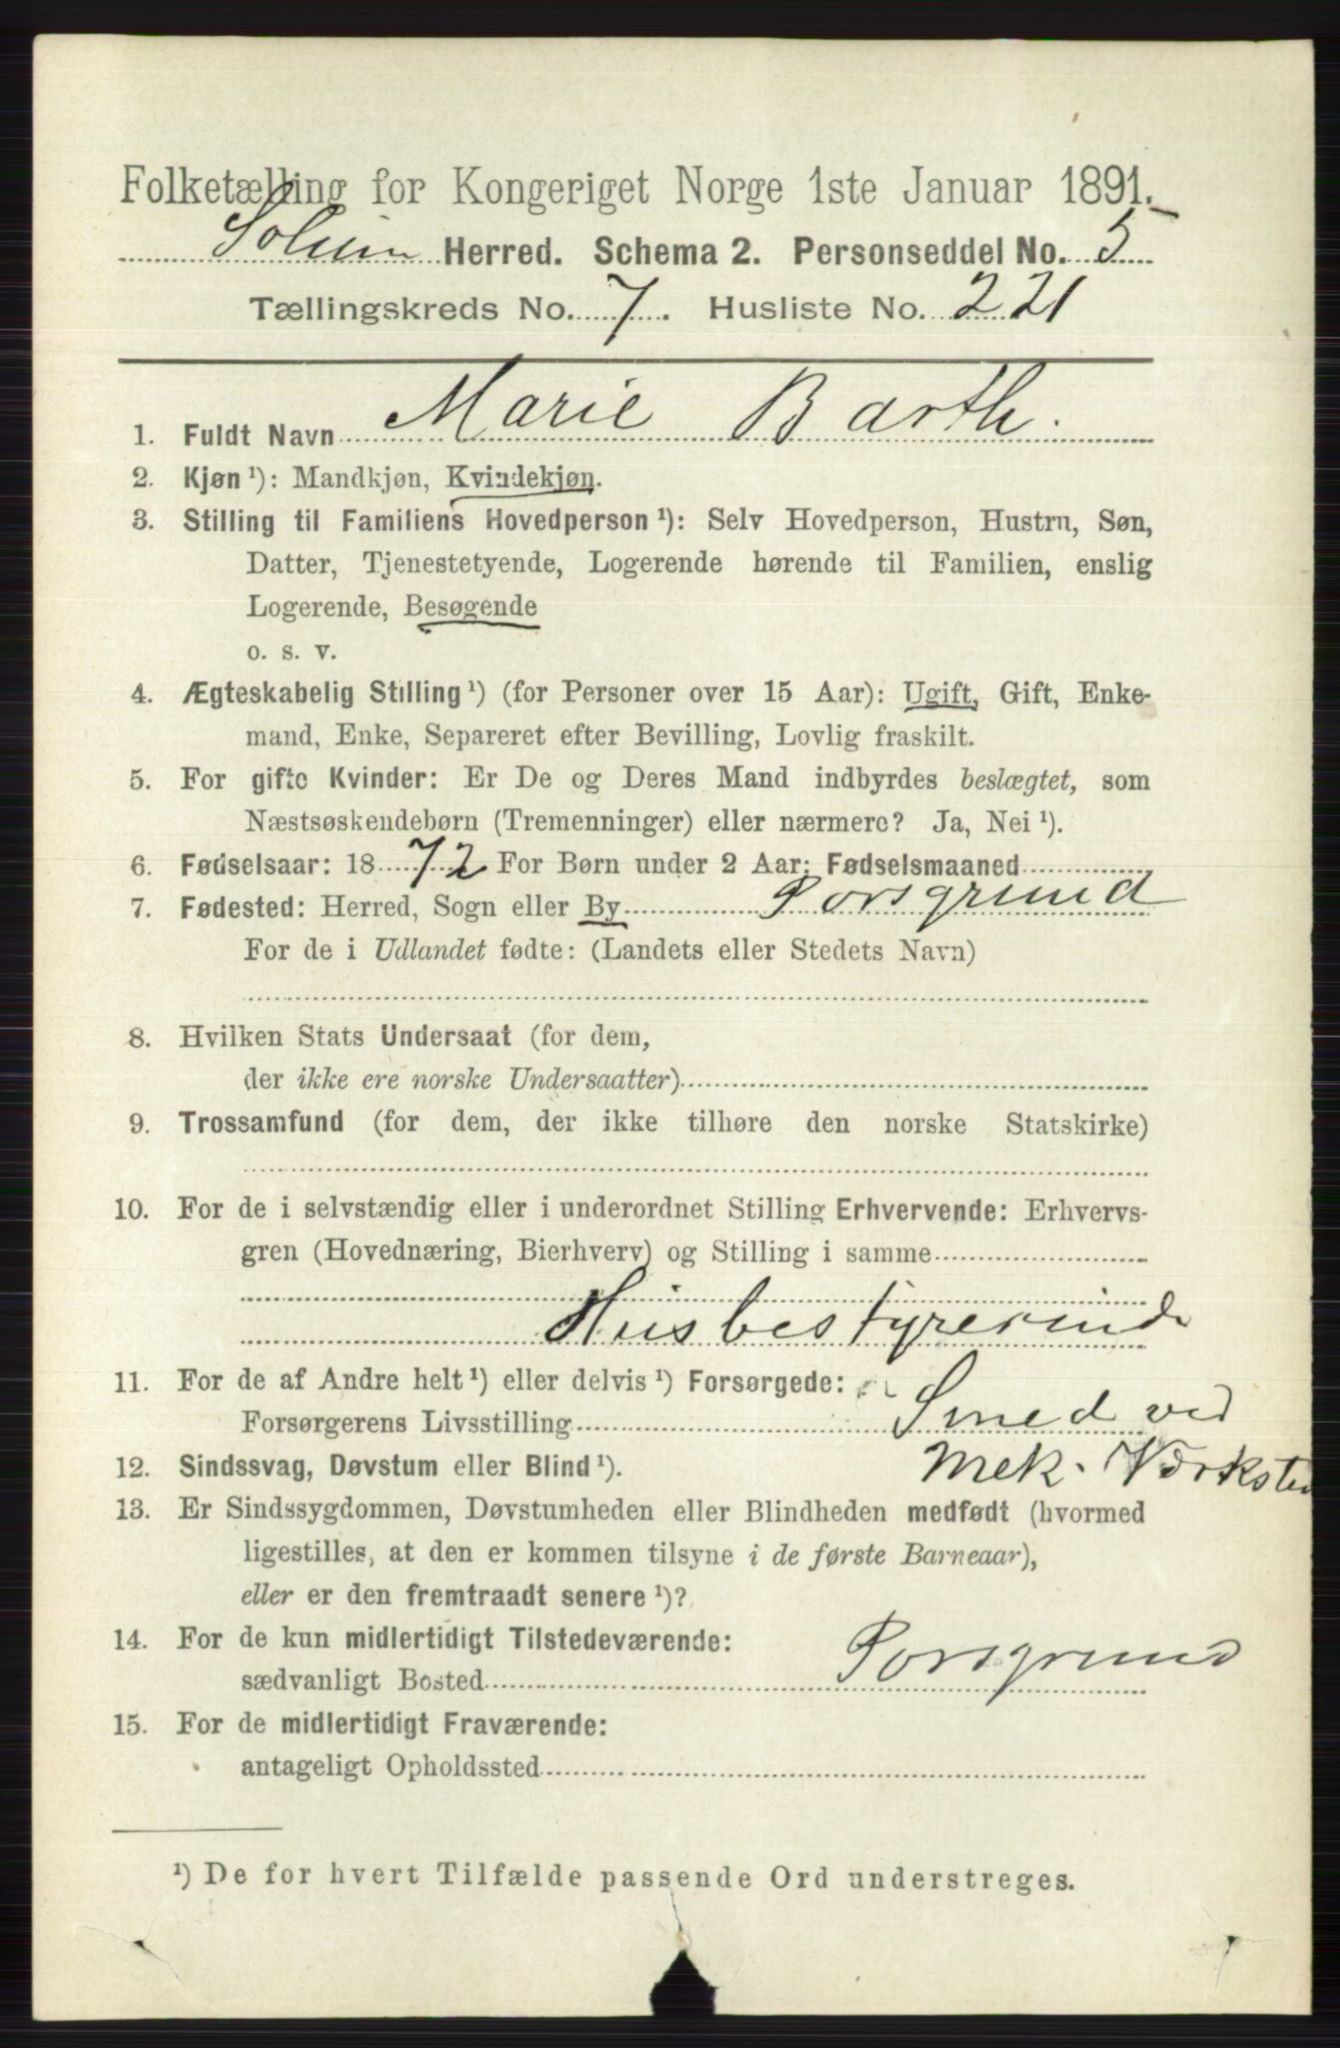 Folketælling for Kongeriget Norge 1ste Januar 1891.
Solum Herred. Schema 2. Personseddel No. 5
Tællingskreds No. 7. Husliste No. 221
1. Fuldt Navn Marie Barth.
2. Kjøn ¹): Mandkjøn, Kvindekjøn.
3. Stilling til Familiens Hovedperson ¹): Selv Hovedperson, Hustru, Søn,
Datter, Tjenestetyende, Logerende hørende til Familien, enslig
Logerende, Besøgende
o. s. v.
4. Ægteskabelig Stilling ¹) (for Personer over 15 Aar): Ugift, Gift, Enke-
mand, Enke, Separeret efter Bevilling, Lovlig fraskilt.
5. For gifte Kvinder: Er De og Deres Mand indbyrdes beslægtet, som
Næstsøskendebørn (Tremenninger) eller nærmere? Ja, Nei ¹).
6. Fødselsaar: 1872 For Børn under 2 Aar: Fødselsmaaned
7. Fødested: Herred, Sogn eller By Porsgrund
For de i Udlandet fødte: (Landets eller Stedets Navn)
8. Hvilken Stats Undersaat (for dem,
der ikke ere norske Undersaatter)
9. Trossamfund (for dem, der ikke tilhøre den norske Statskirke)
10. For de i selvstændig eller i underordnet Stilling Erhvervende: Erhvervs-
gren (Hovednæring, Bierhverv) og Stilling i samme
Husbestyrerinde
11. For de af Andre helt ¹) eller delvis ¹) Forsørgede:
Forsørgerens Livsstilling Smed ved
12. Sindssvag, Døvstum eller Blind ¹). Mek. Værksted
13. Er Sindssygdommen, Døvstumheden eller Blindheden medfødt (hvormed
ligestilles, at den er kommen tilsyne i de første Barneaar),
eller er den fremtraadt senere ¹)?
14. For de kun midlertidigt Tilstedeværende:
sædvanligt Bosted Porsgrund
15. For de midlertidigt Fraværende:
antageligt Opholdssted
¹) De for hvert Tilfælde passende Ord understreges.